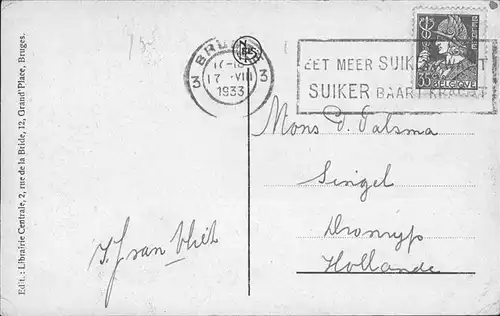 Edit.: Librairie Centrale, 2, rue de la Bride, 12, Grand'Place, Bruges.
3 3
17 VIII
1933
EET MEER SUIK
SUIKER BAART
35
BELGIQUE
Mons D. Palsma
Singel
Dronryp
Hollande
J.J. van Vliet